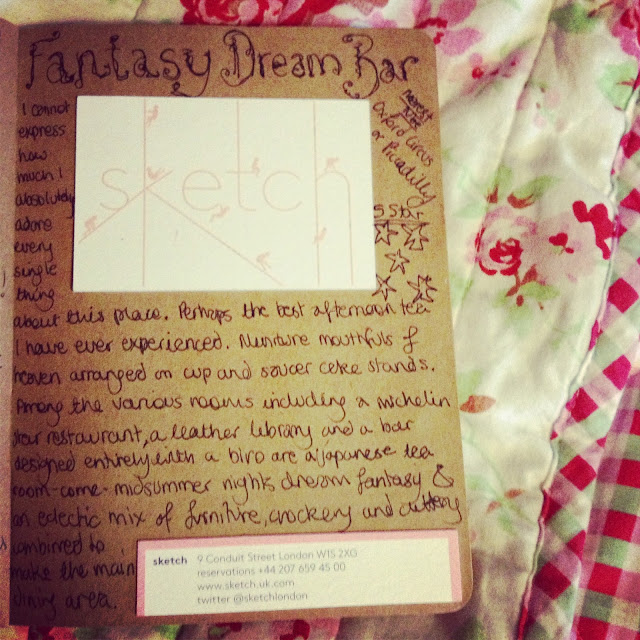 Fantasy Dream Bar
I cannot
express
how
much I
absolutely
adore
every
single
thing
sketch
nearest
tube
Oxford Circus
or Picadilly
5 star
about this place. Perhaps the best afternoon tea
I have ever experienced. Miniture mouthfuls of
heaven arranged on cup and saucer cake stands.
Among the various rooms including a michelin
star restaurant, a leather library and a bar
designed entirely with a biro are a japanese tea
room-come-midsummer nights dream fantasy &
an eclectic mix of furniture, crockery and cutlery
combined to
make the main
dining area.
sketch 9 Conduit Street London W1S 2XG
reservations +44 207 659 45 00
www.sketch.uk.com
twitter @sketchlondon